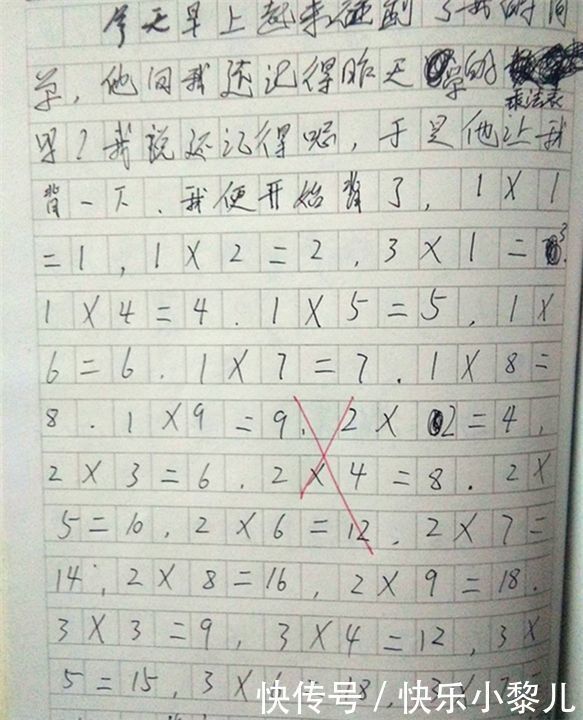 今天早上起来碰到了我的同
学,他问我还记得昨天学的
乘法表
吗?我说还记得呢,于是他让我
背一下,我便开始背了,1×1
=1,1×2=2,3×1=3.
1×4=4.1×5=5,1×
6=6.1×7=7.1×8=
8.1×9=9.2×2=4,
2×3=6.2×4=8.2×
5=10,2×6=12,2×7=
14,2×8=16,2×9=18.
3×3=9,3×4=12,3×
5=15,3×
快传号/快乐小黎儿